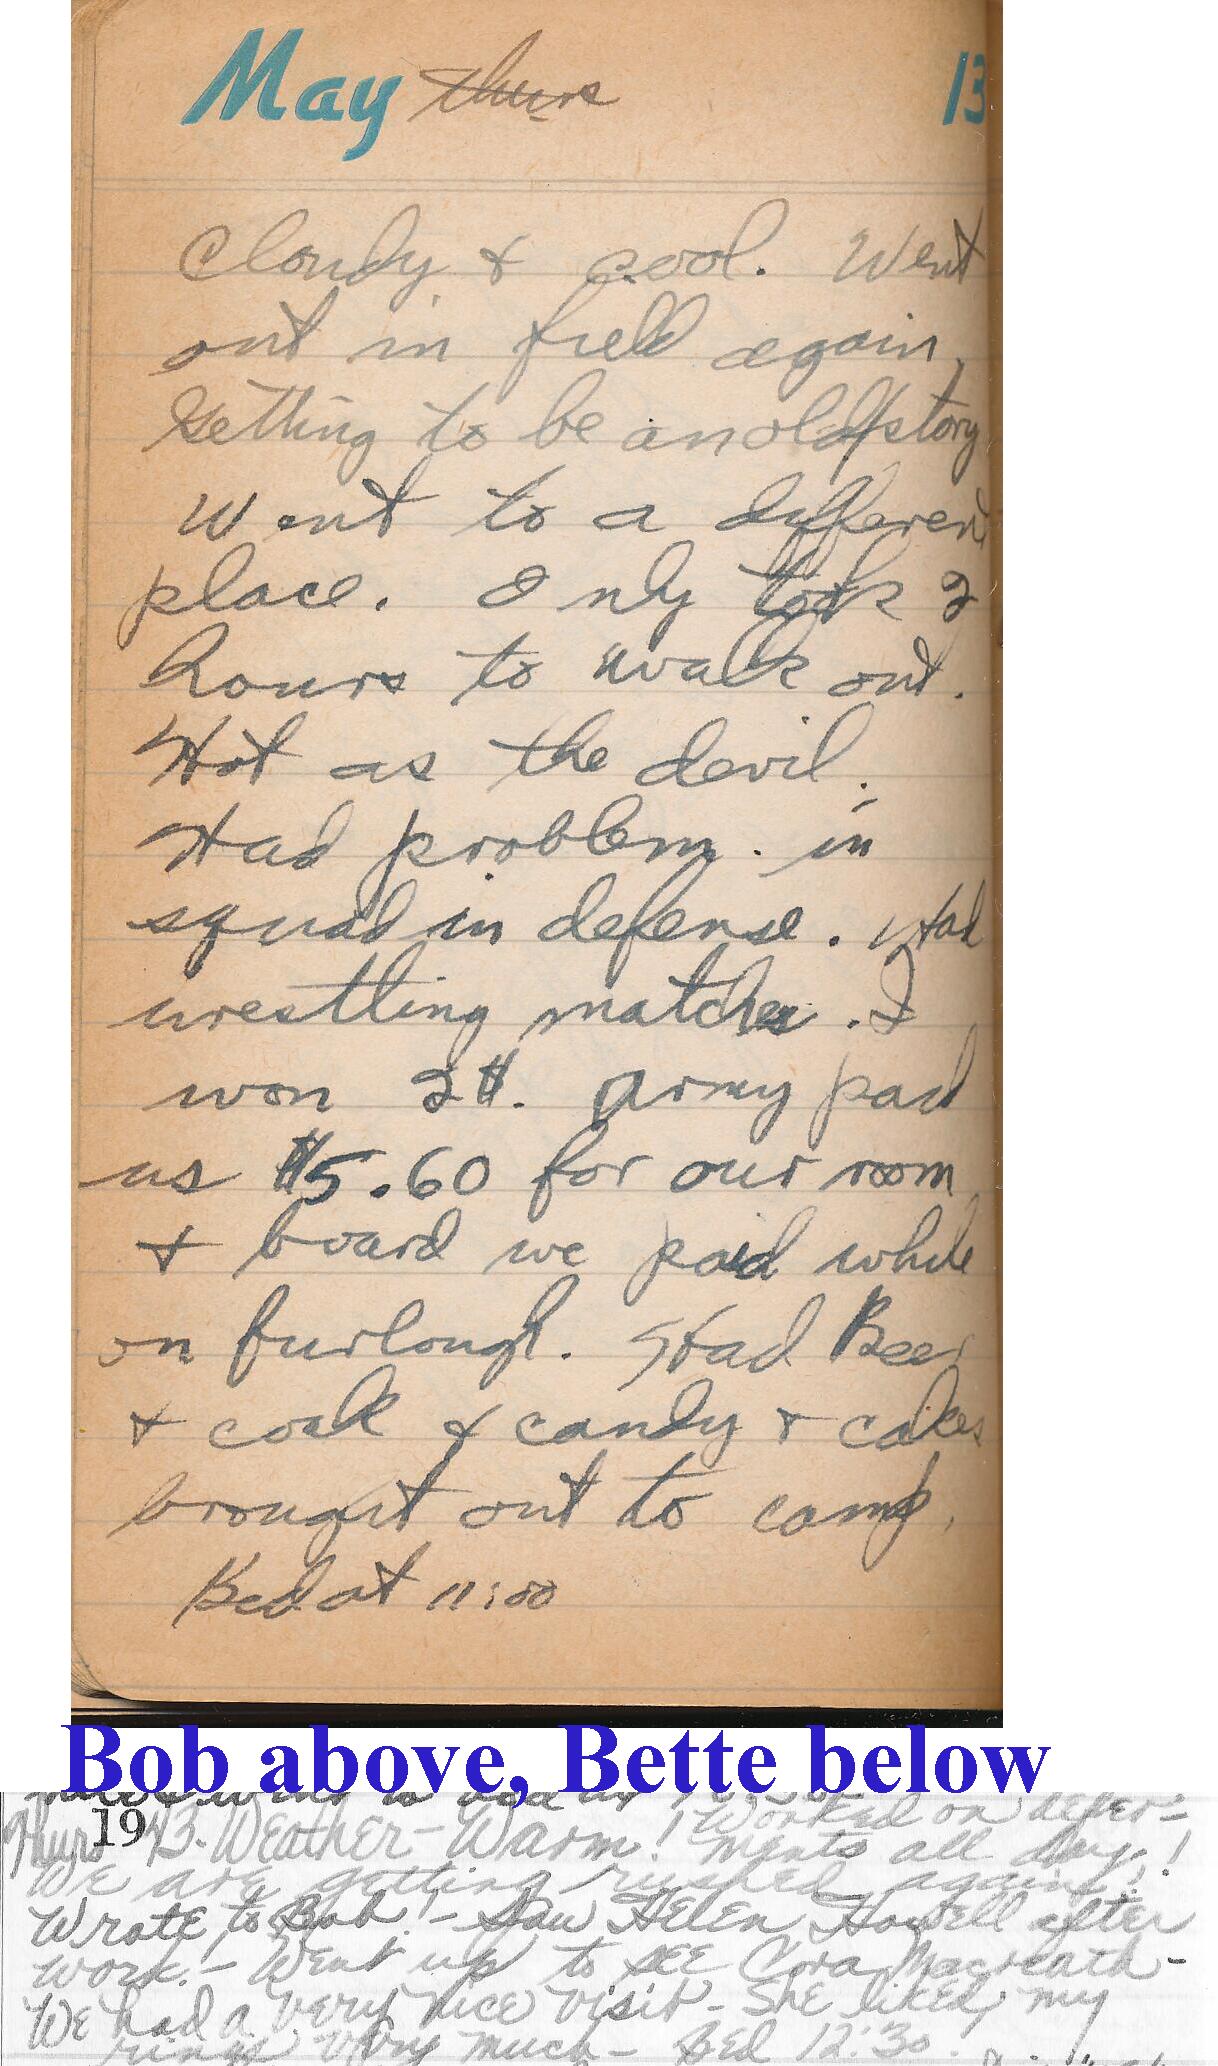 May Thurs 13
Cloudy & cool. Went
out in field again,
Getting to be an old story
Went to a different
place. Only took 2
hours to walk out.
Hot as the devil.
Had problem. in
squad in defense. Had
wrestling matches. I
won 2$. Army paid
us $5.60 for our room
& board we paid while
on furlough. Had Beer
& coak & candy & cakes
brought out to camp.
Bed at 11:00
Bob above, Bette below
19
Thurs 13. Weather - Warm! Worked on defer-
ments all day!
We are getting rushed again!
Wrote to Bob! - Saw Helen Howell after
work. - Went up to see Cora Macreath -
We had a very nice visit - She liked my
rings very much - Bed 12:30.